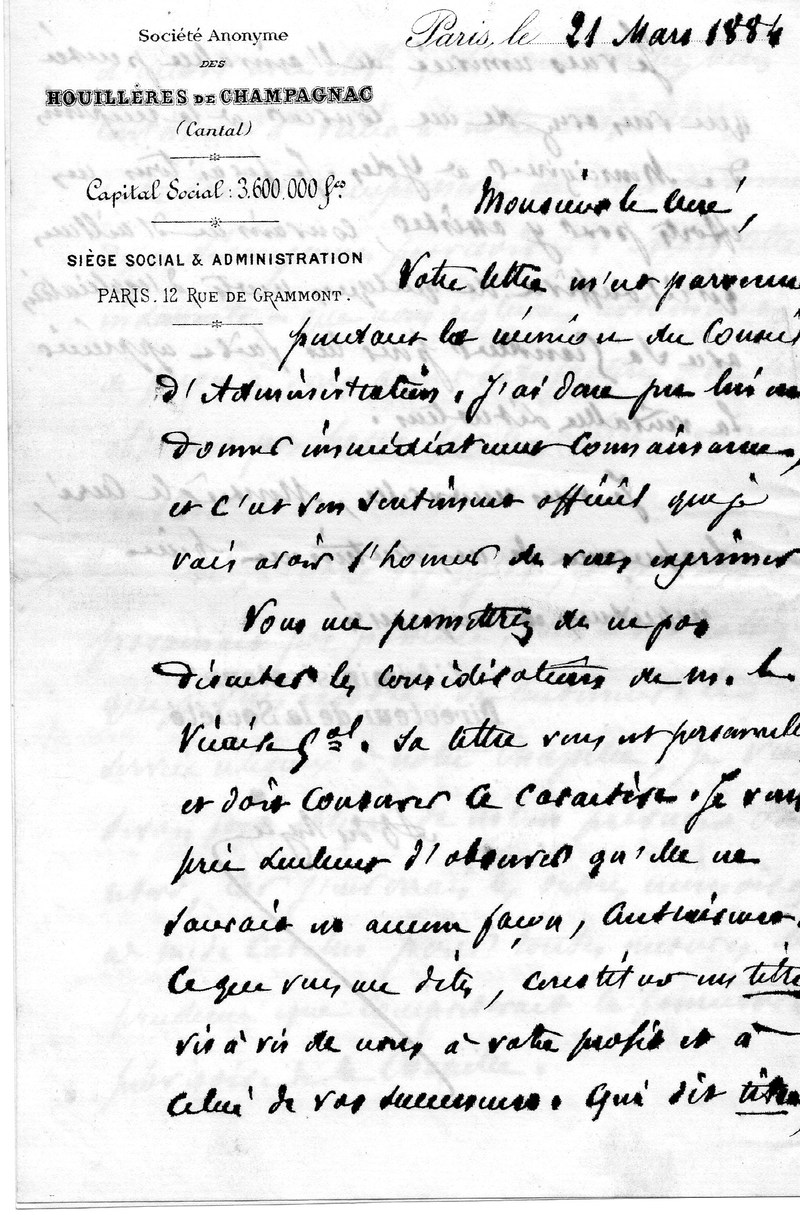 Société Anonyme
DES
HOUILLÈRES DE CHAMPAGNAC
(Cantal)
Capital Social: 3.600.000 fcs.
SIÈGE SOCIAL & ADMINISTRATION
PARIS. 12 RUE DE GRAMMONT.
Paris, le 21 Mars 1884
Monsieur le Curé,
Votre lettre m'est parvenue
pendant la réunion du Conseil
d'Administration. J'ai donc pu lui en
donner immédiatement connaissance,
et c'est son sentiment officiel que je
vais avoir l'honneur de vous exprimer
Vous me permettrez de ne pas
discuter les considérations de M. le
Vicaire Gal. Sa lettre vous est personnelle
et doit conserver ce caractère. Je vous
prie seulement d'observer qu'elle ne
saurait en aucune façon, contrairement à
ce que vous me dites, constituer un titre
vis à vis de nous à votre profit et à
celui de vos successeurs. Qui dit titre,